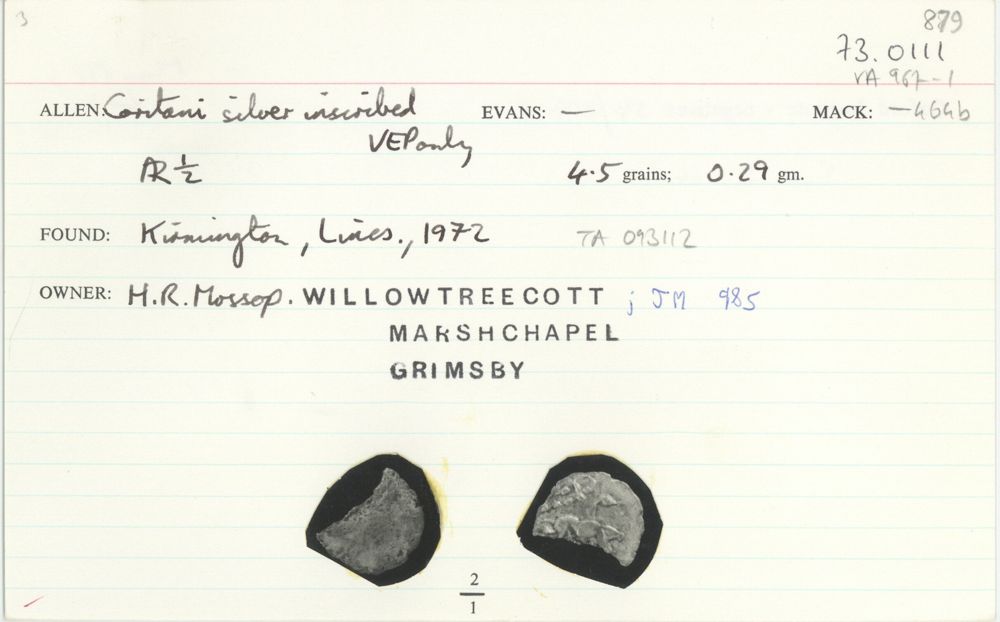 3
879
73.0111
VA 967-1
ALLEN: Coritani silver inscribed EVANS: — MACK: — 464b
VEP only
AR ½ 4.5 grains; 0.29 gm.
FOUND: Kirmington, Lincs., 1972 TA 093112
OWNER: H.R. Mossop. WILLOWTREECOTT ; JM 985
MARSHCHAPEL
GRIMSBY
2
1